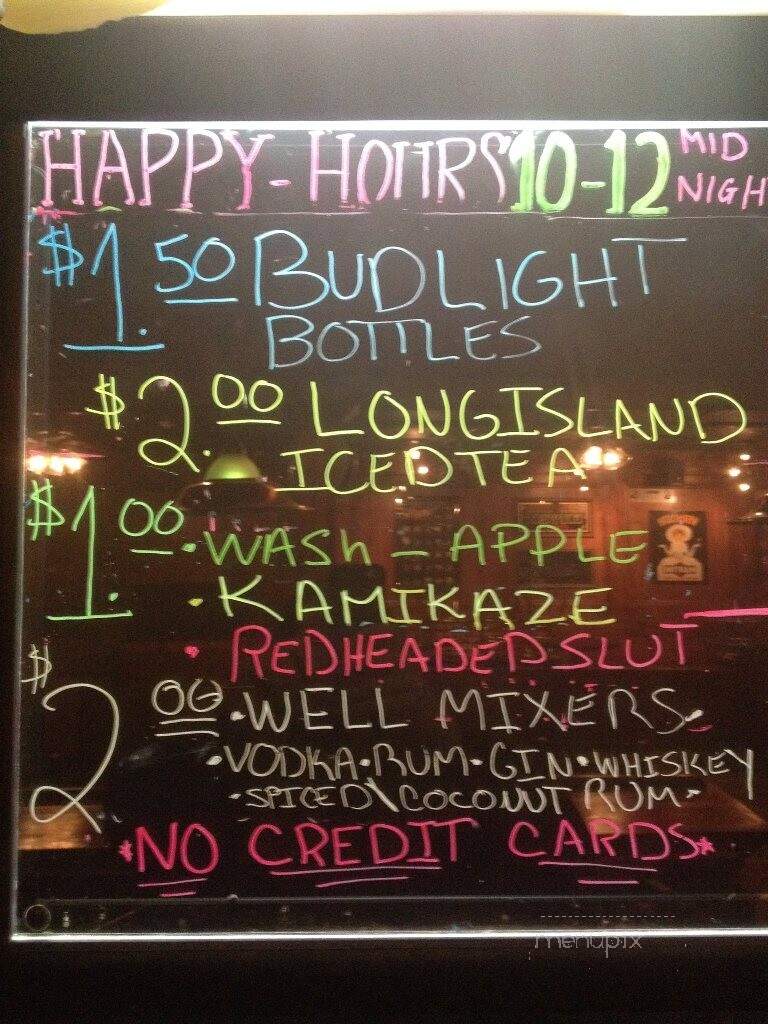 HAPPY - HOURS 10-12 MID NIGH
$1.50 BUD LIGHT
BOTTLES
$2.00 LONG ISLAND
ICED TEA
$1.00 • WASh - APPLE
• KAMIKAZE
• REDHEADED SLUT
$2.00 • WELL MIXERS •
• VODKA • RUM • GIN • WHISKEY
• SPICED \ COCONUT RUM •
*NO CREDIT CARDS*
menupix